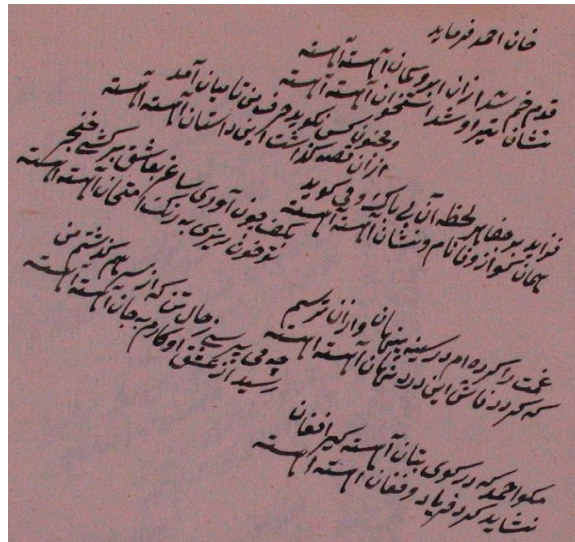 خان احمد فرماید
قدم خم شد ازان ابرو کمان آهسته آهسته
نشان تیر او شد استخوان آهسته آهسته
مجنون کس نکوید حرف من تا میان آمد
ازان قصه کذشت این داستان آهسته آهسته
فزاید بر جفا هر لحظه آن بی باک و می کوید
از وفا نام و نشان آهسته آهسته
بکف چون آوری ساغر بعاشق برکشی خنجر
تو خون ریزی به رنک امتحان آهسته آهسته
غمت را کرده ام در سینه پنهان وازان ترسم
که کردد فاش این درد نهان آهسته آهسته
چه می پرسی ز حال من که از سر هم کذشتم من
رسید از عشق او کارم به جان آهسته آهسته
مکو احمد که در کوی بتان آهسته کیر افغان
نشاید کرد فریاد و فغان آهسته آهسته